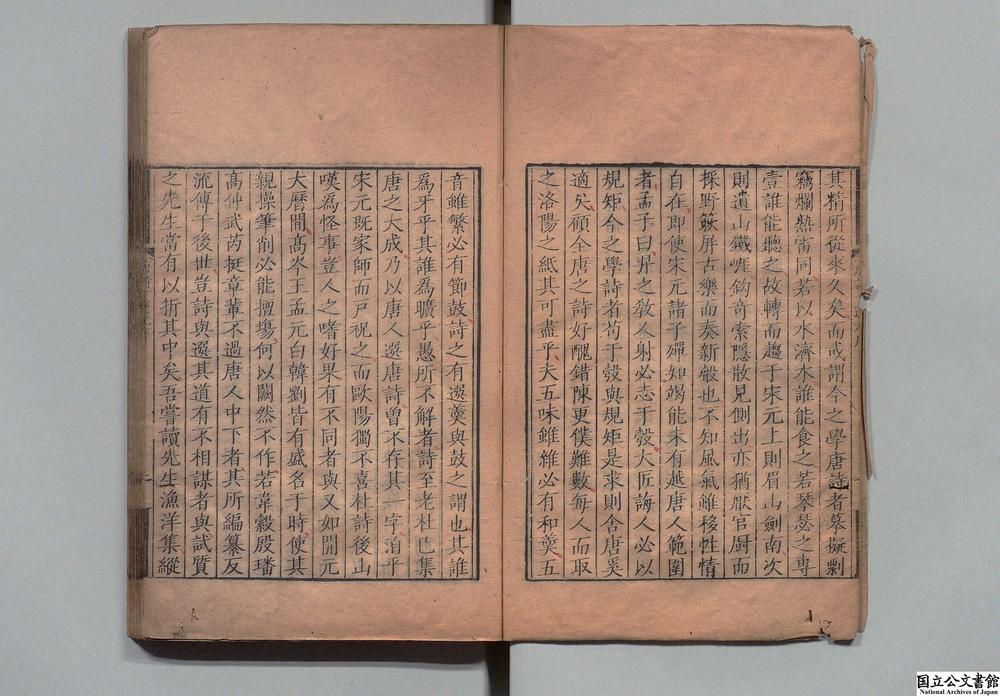 其精所從來久矣而或謂今之學唐詩者摹擬剽
竊爛熟雷同若以水濟水誰能食之若琴瑟之專
壹誰能聽之故轉而趨于宋元上則眉山劍南次
則遺山鐵崖鈎奇索隱散見側出亦猶厭官厨而
採野簌屏古樂而奏新聲也不知風氣雖移性情
自在即使宋元諸子殫知竭能未有越唐人範圍
者孟子曰羿之敎人射必志于彀大匠誨人必以
規矩今之學詩者苟于彀與規矩是求則舍唐奚
適矣顧全唐之詩好醜錯陳更僕難數每人而取
之洛陽之紙其可盡乎夫五味雖雜必有和羹五
音雖繁必有節鼓詩之有選羹與鼓之謂也其誰
爲牙乎其誰爲曠乎愚所不解者詩至老杜已集
唐之大成乃以唐人選唐詩曾不存其一字洎乎
宋元旣家師而戸祝之而歐陽獨不喜杜詩後山
嘆爲怪事豈人之嗜好果有不同者與又如開元
大曆間高岑王孟元白韓劉皆有盛名于時使其
親操筆削必能擅塲何以闕然不作若韋縠殷璠
高仲武芮挺章輩不過唐人中下者其所編纂反
流傳于後世豈詩與選其道有不相謀者與試質
之先生當有以折其中矣吾嘗讀先生漁洋集縱
国立公文書館
National Archives of Japan